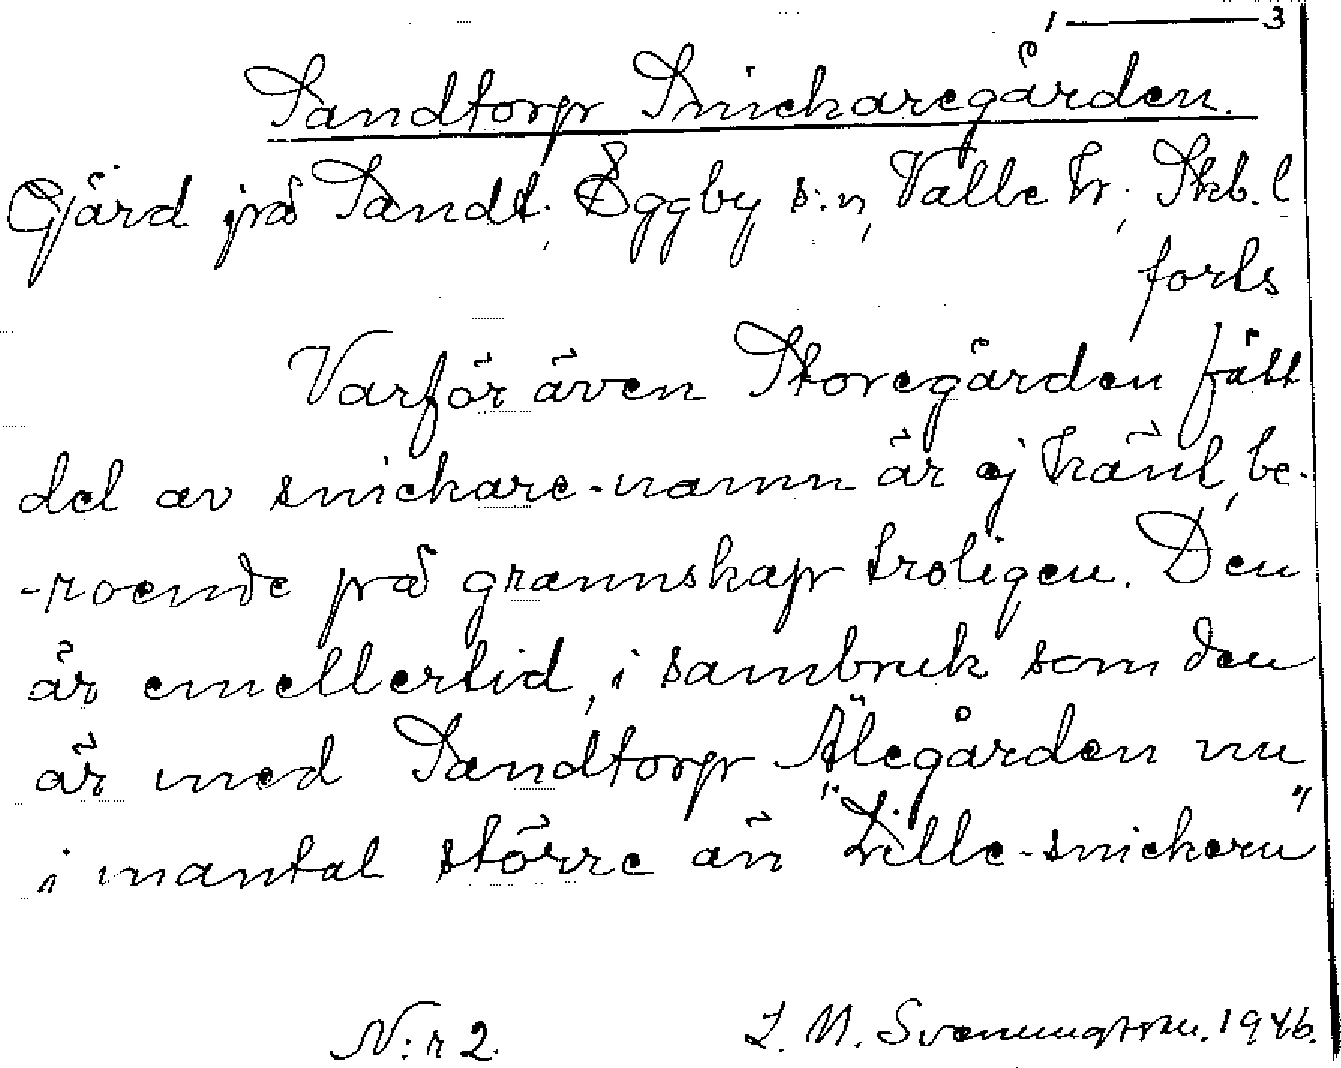 1 — 3
Sandtorp Snickaregården.
Gård på Sandt., Eggby s:n, Valle hr., Skb. l
forts
Varför även Storegården fått
del av snickare-namn är ej känt, be-
-roende på grannskap troligen. Den
är emellertid, i sambruk som den
är med Sandtorp Ålegården nu
i mantal större än "Lille-snickern"
N:r 2. L. M. Svenungsson. 1946.